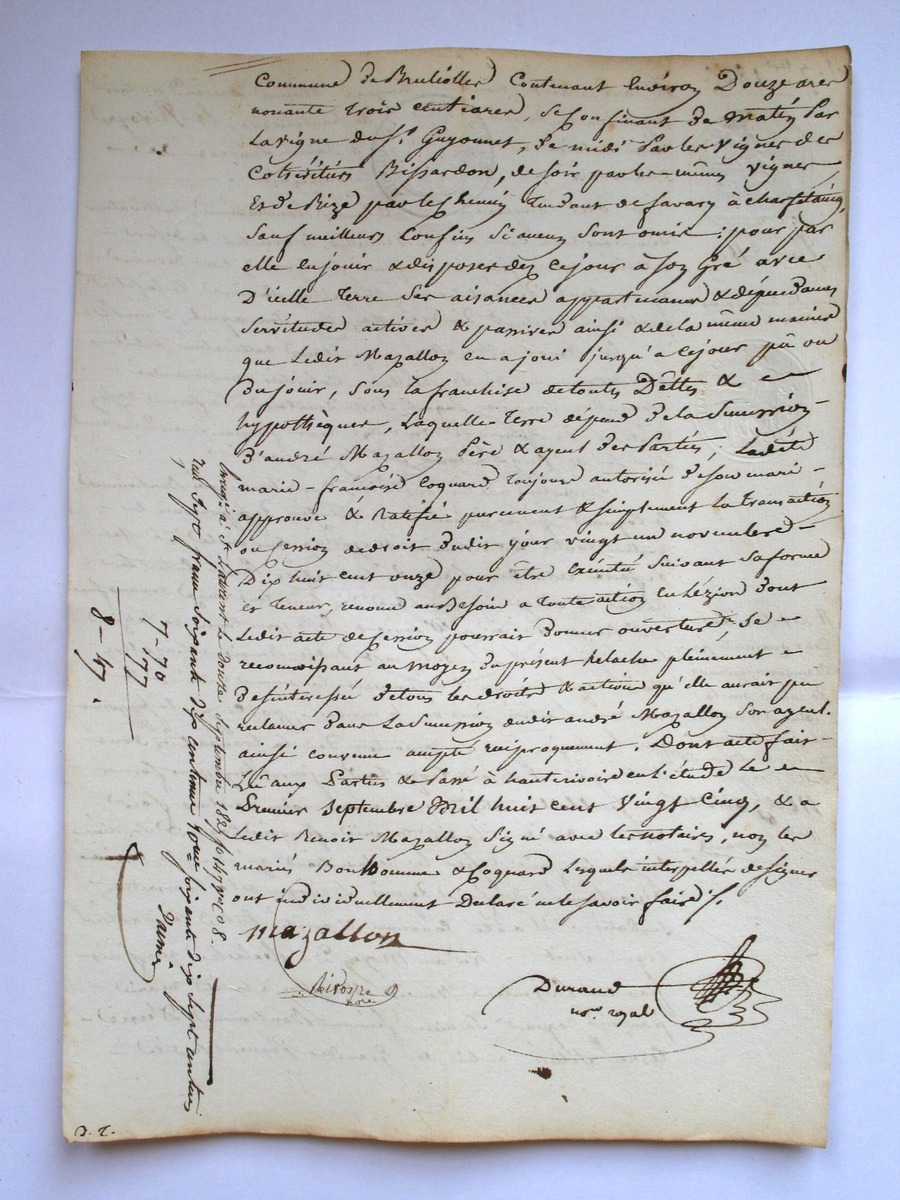 Commune de Brullolles Contenant Environ Douze ares
nonante trois centiares, se confinant de matin par
La vigne du Sr. Guyonnet, de midi par les Vignes des
Cohéritiers Bissardon, de soir par les mêmes Vignes
Et de Bize par le chemin Tendant de Savary à
Sauf meilleurs Confins Si aucuns Sont omis : pour par
elle en jouir & disposer dès ce jour à son gré avec
D'icelle Terre Ses aisances appartenances & dépendances
Servitudes actives & passives ainsi & de la même manière
que Ledit Mazallon en a joui jusqu'à ce jour pû ou
Du jouir, Sous la franchise de toutes Dêttes &
hypothèques, Laquelle Terre dépend de la Succession
D'andré Mazallon Père & ayeul des Parties, Ladite
marie-françoise Coquard toujours autorisée de son mari
approuve & Ratifie purement & simplement la transaction
ou Cession de droit dudit jour vingt un novembre
Dix huit cent onze pour être exécuté Suivant sa forme
et Teneur, renonce au Besoin à Toute action en Lézion Dont
Ledit acte de Cession pourrait Donner ouverture, Se
reconnoissant au moyen du présent Relache pleinement
Desintéressée de tous les droits & actions qu'elle aurait pu
reclamer dans La Succession dudit andré Mazallon Son ayeul.
ainsi convenu accepté réciproquement. Dont acte fait
Lu aux Parties & Passé à hauterivoire en l'étude le
Premier Septembre Mil huit Cent Vingt Cinq, & a
Ledit Benoit Mazallon Signé avec les notaires, non les
mariés Bonhomme & Coquard Lesquels interpellés de signer
ont individuellement Déclaré ne le Savoir faire ./.
Mazallon
Durand
nore. royal
Enregé. à St Laurent le douze septembre 1825 fo 147 Vo c 8.
reçu sept francs soixante dix centimes 10me soixante dix sept centimes
7-70
77
8-47.
B. T.